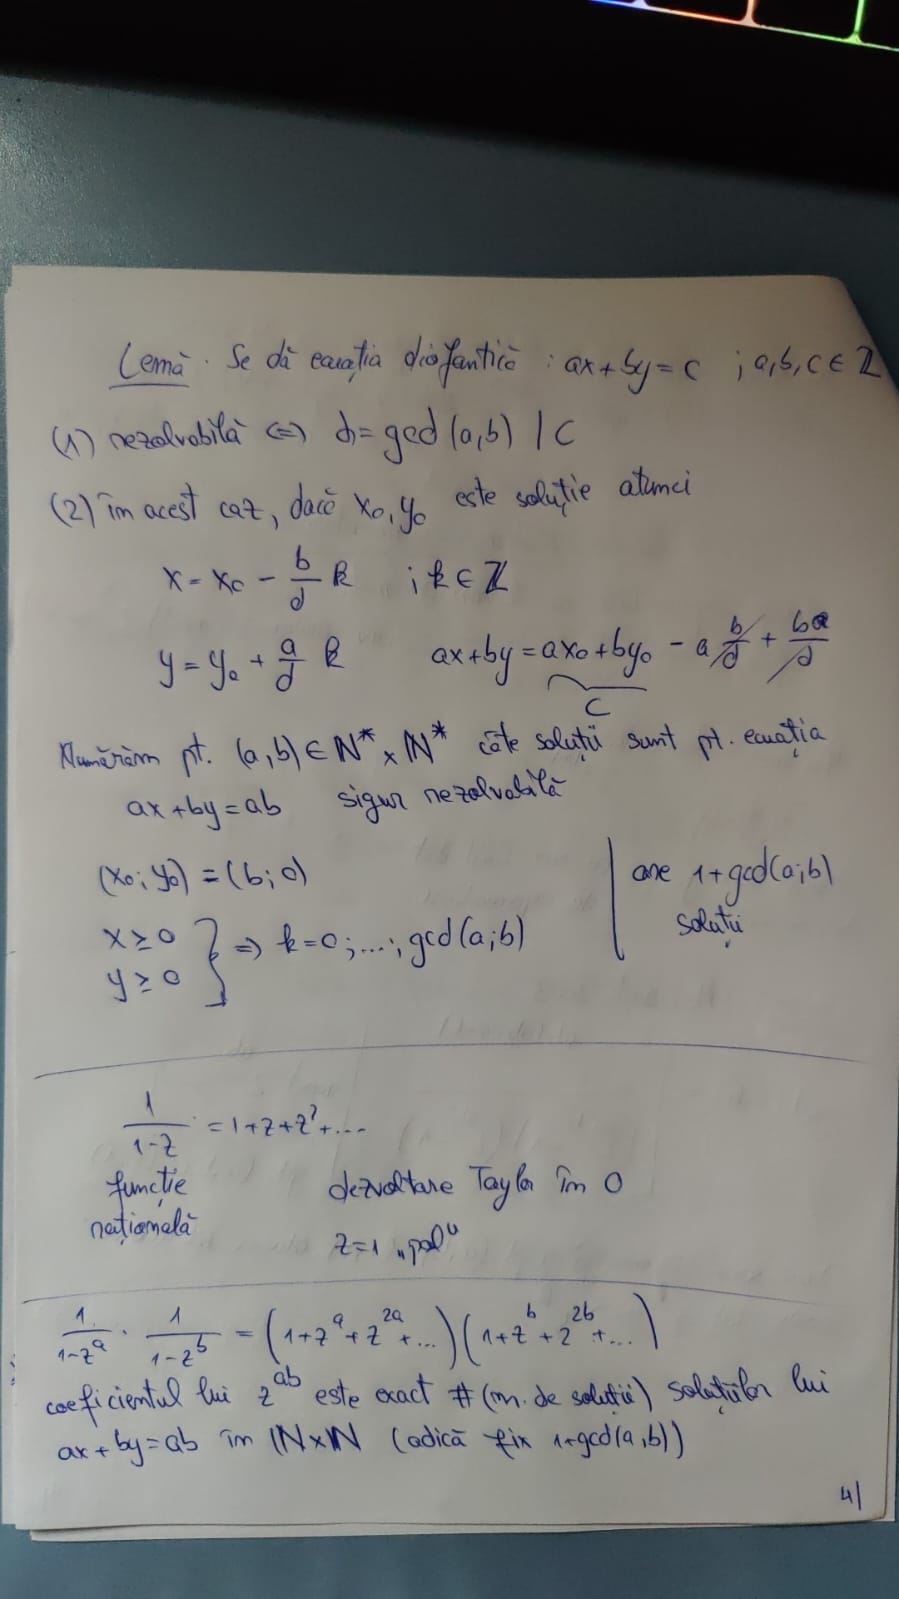 Lemă. Se dă ecuația diofantică : ax+by=c ; a,b,c ∈ ℤ
(1) rezolvabilă ⇔ d=gcd(a,b) | c
(2) în acest caz, dacă x₀,y₀ este soluție atunci
x = x₀ - b/d k ; k ∈ ℤ
y = y₀ + a/d k ax+by = ax₀+by₀ - a b/d + ba/d
c
Numărăm pt. (a,b) ∈ ℕ* × ℕ* câte soluții sunt pt. ecuația
ax+by=ab sigur rezolvabilă
(x₀; y₀) = (b; 0) are 1+gcd(a;b)
x ≥ 0 } ⇒ k=0;...; gcd(a;b) soluții
y ≥ 0
1/(1-z) = 1+z+z²+...
funcție dezvoltare Taylor în 0
rațională z=1 „pol"
1/(1-zᵃ) · 1/(1-zᵇ) = (1+zᵃ+z²ᵃ+...)(1+zᵇ+z²ᵇ+...)
coeficientul lui zᵃᵇ este exact # (nr. de soluții) soluțiilor lui
ax+by=ab în ℕ×ℕ (adică fix 1+gcd(a,b))
4/